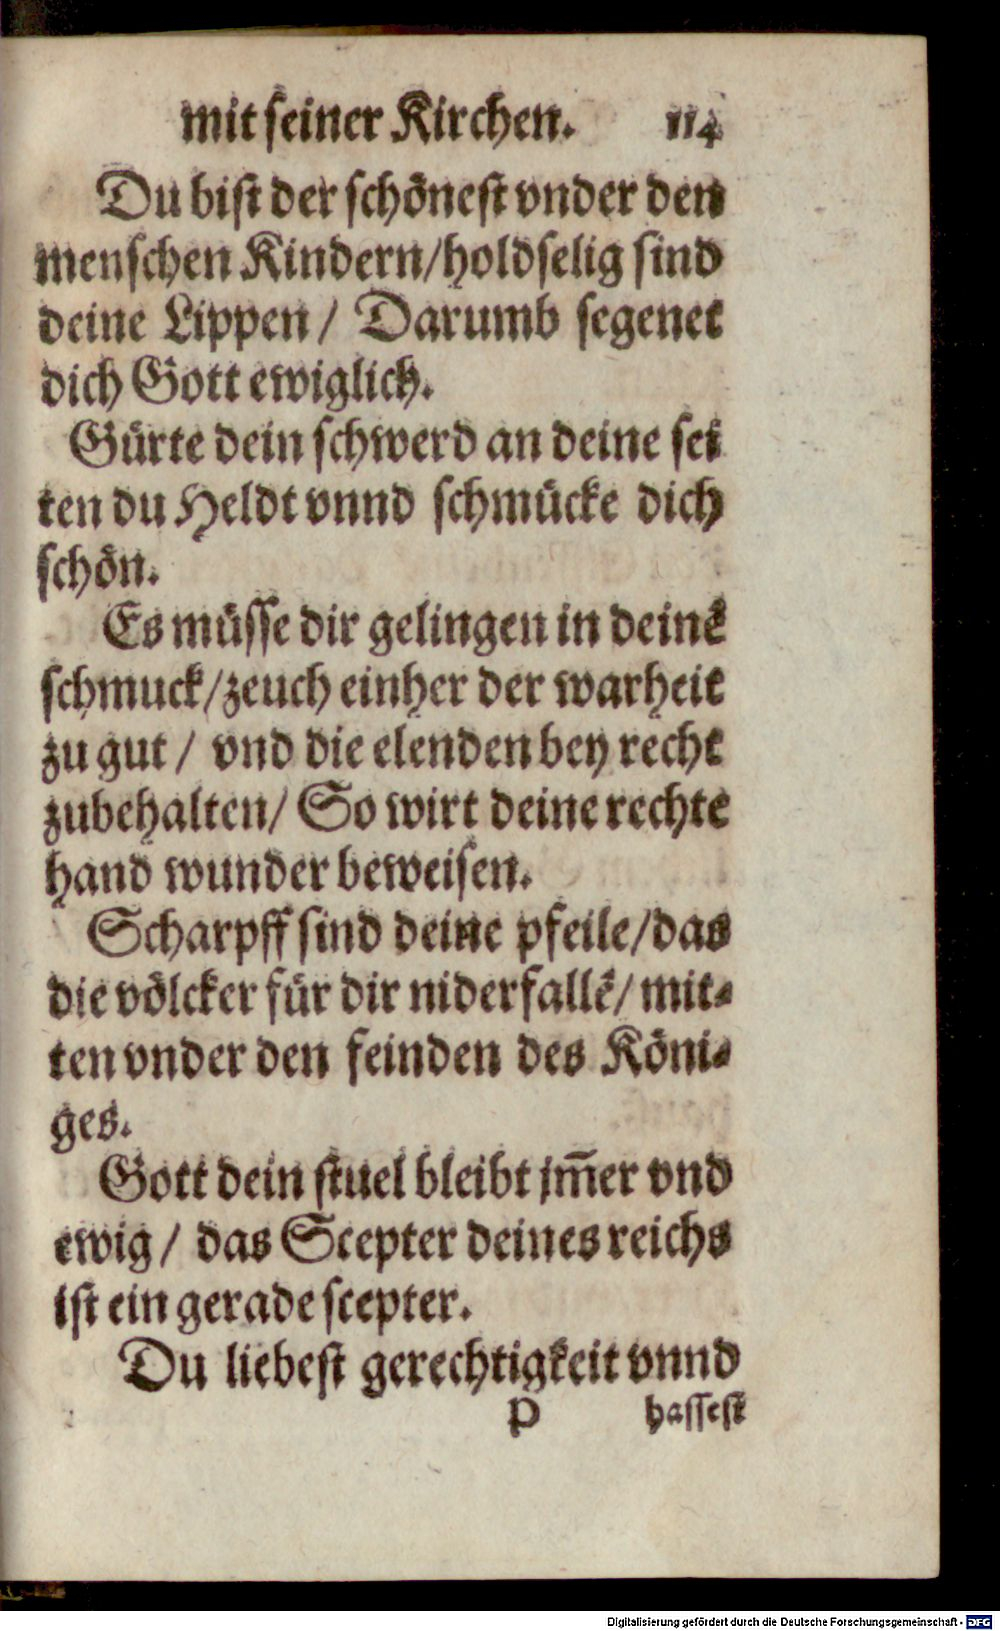 mit seiner Kirchen. 114
Du bist der schönest vnder den
menschen Kindern/holdselig sind
deine Lippen/ Darumb segenet
dich Gott ewiglich.
Gürte dein schwerd an deine sei
ten du Heldt vnnd schmücke dich
schön.
Es müsse dir gelingen in deinē
schmuck/zeuch einher der warheit
zu gut/ vnd die elenden bey recht
zubehalten/ So wirt deine rechte
hand wunder beweisen.
Scharpff sind deine pfeile/das
die völcker für dir niderfallē/ mit-
ten vnder den feinden des Köni-
ges.
Gott dein stuel bleibt jm̄er vnd
ewig/ das Scepter deines reichs
ist ein gerade scepter.
Du liebest gerechtigkeit vnnd
P hassest
Digitalisierung gefördert durch die Deutsche Forschungsgemeinschaft - DFG